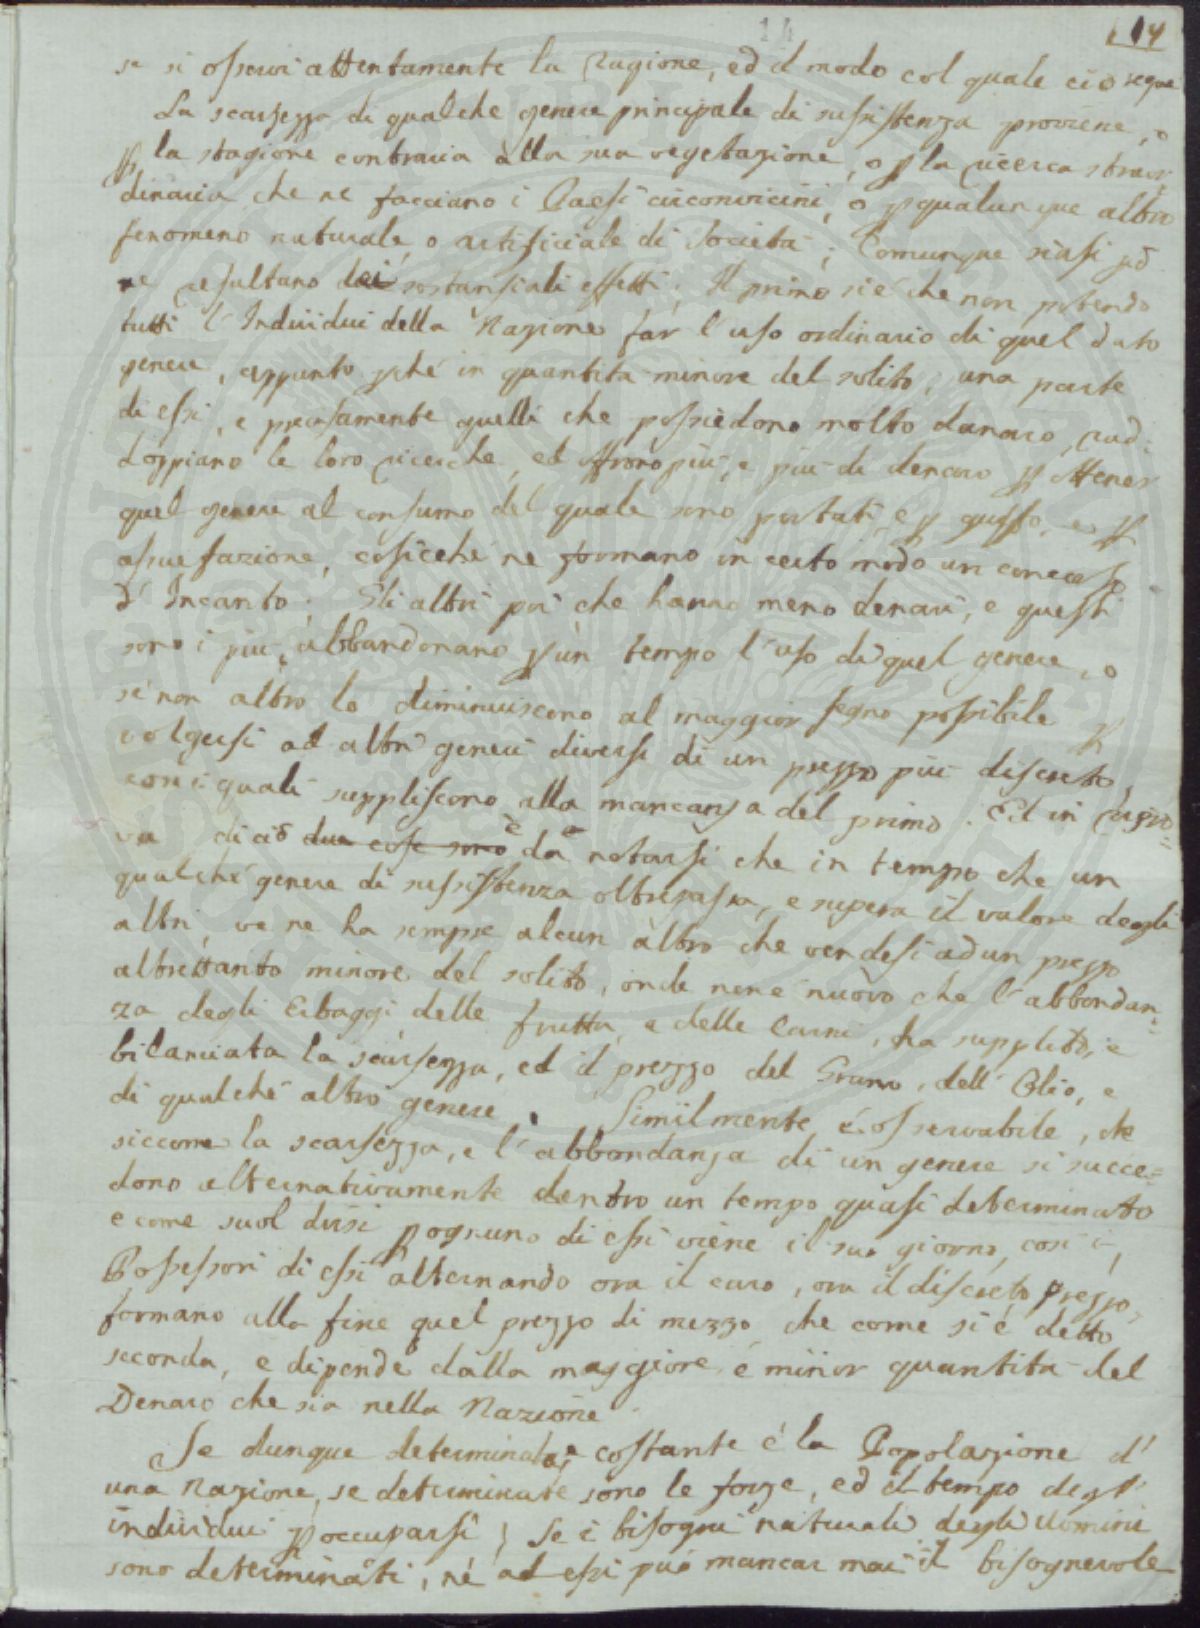 14
14
se si osservi attentamente la ragione, ed il modo col quale ciò segue
La scarsezza di qualche genere principale di sussistenza proviene, o
p la stagione contraria alla sua vegetazione, o p la ricerca straor
dinaria che ne facciano i Paesi circonvicini, o p qualunque altro
fenomeno naturale, o artificiale di Società; Comunque siasi
ne resultano dei sostanziali effetti; Il primo si è che non potendo
tutti l'Individui della Nazione far l'uso ordinario di quel dato
genere, appunto pché in quantità minore del solito, una parte
di essi, e precisamente quelli che possiedono molto danaro, rad:
doppiano le loro ricerche, ed offrono più, e più di denaro p ottener
quel genere al consumo del quale sono portati, e p gusto, e p
assuefazione, cosicché ne formano in certo modo un concesso
d'Incanto. Gli altri poi che hanno meno denari, e questi
sono i più, abbandonano p un tempo l'uso di quel genere, o
se non altro lo diminuiscono al maggior segno possibile p
volgersi ad altri generi diversi di un prezzo più discreto,
con i quali suppliscono alla mancanza del primo. Ed in ripro=
va di ciò due cose sono è da notarsi che in tempo che un
qualche genere di sussistenza oltrepassa, e supera il valore degli
altri, ve ne ha sempre alcun altro che vendesi ad un prezzo
altrettanto minore del solito, onde non è nuovo che l'abbondan=
za degli Erbaggi, delle frutta, e delle Carni, ha supplito, e
bilanciata la scarsezza, ed il prezzo del Grano, dell'Olio, e
di qualche altro genere. Similmente è osservabile, che
siccome la scarsezza, e l'abbondanza di un genere si succe=
dono alternativamente dentro un tempo quasi determinato
e come suol dirsi p ognuno di essi viene il suo giorno, così i
Possessori di essi alternando ora il caro, ora il discreto prezzo,
formano alla fine quel prezzo di mezzo che come si è detto
seconda, e dipende dalla maggiore, e minor quantità del
Denaro che sia nella Nazione
Se dunque determinata, e costante è la Popolazione d'
una Nazione, se determinate sono le forze, ed il tempo degl'
individui p occuparsi; Se i bisogni naturali degli Uomini
sono determinati, né ad essi può mancar mai il bisognevole